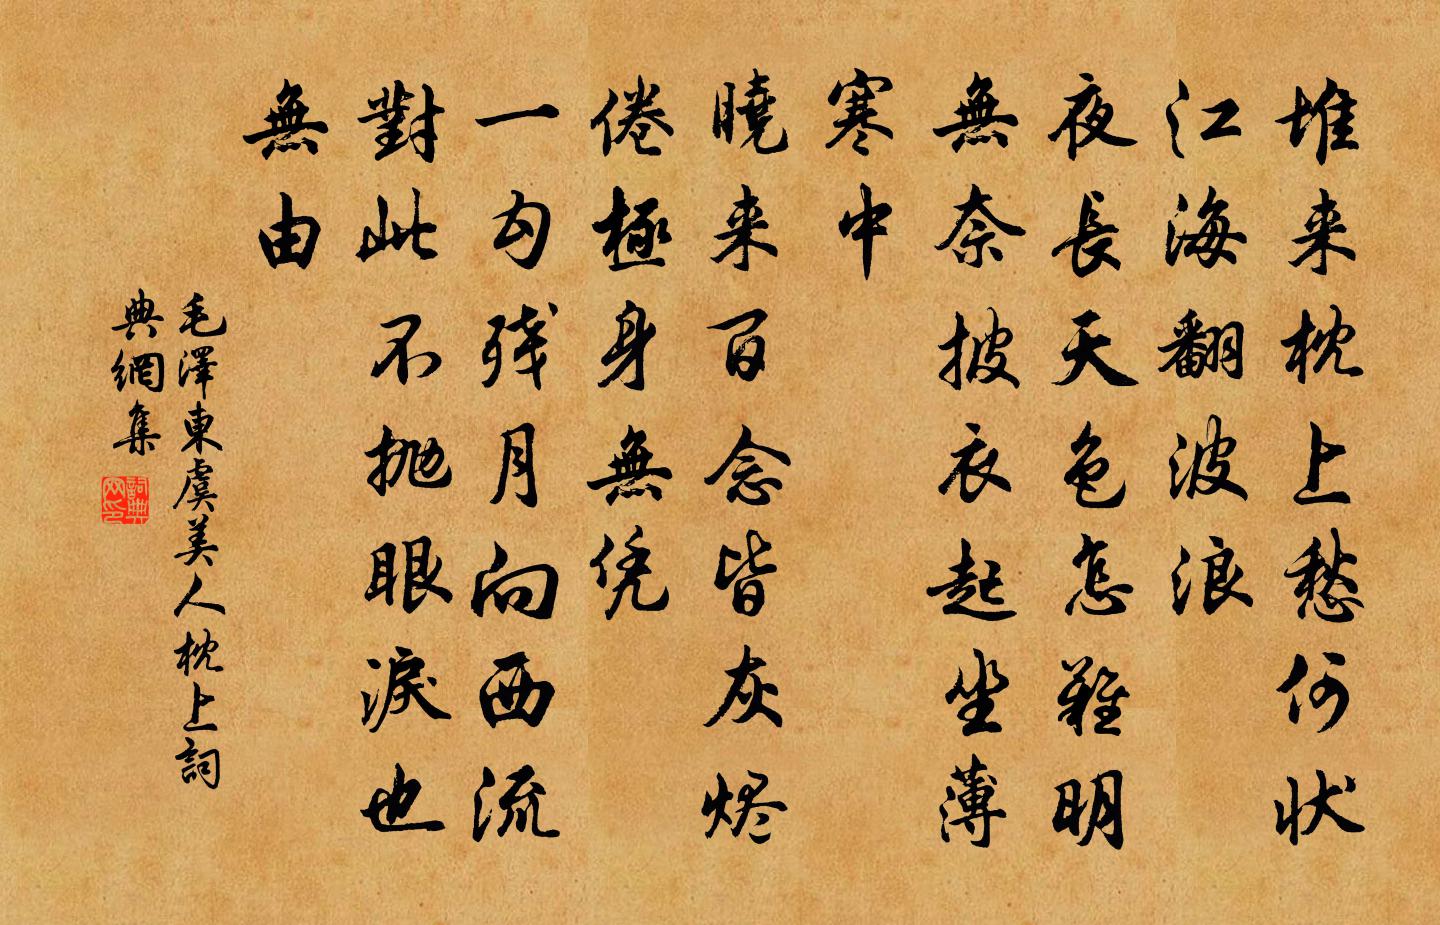 堆来枕上愁何状
江海翻波浪
夜長天色怎難明
無奈披衣起坐薄
寒中
曉来百念皆灰烬
倦極身無凭
一勾残月向西流
對此不抛眼淚也
無由
毛澤東虞美人枕上詞
典網集
詞典
网印